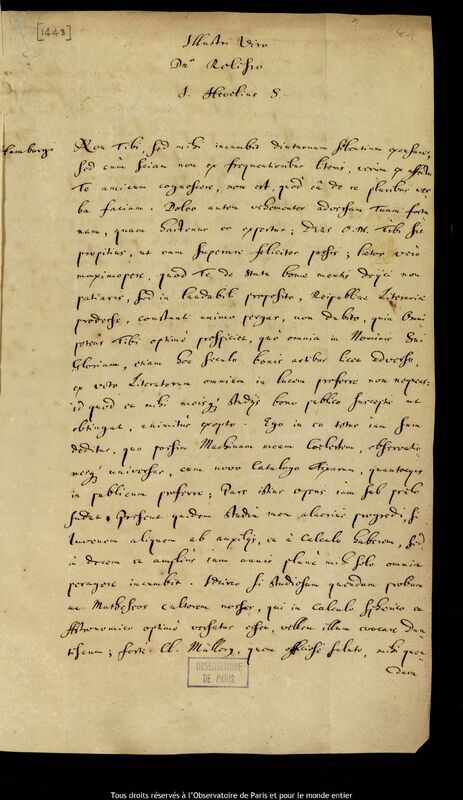 [1448]
Illustri Viro
Dn.o Rolfio
J. Hevelius S.
Hamburgi
Non Tibi, sed mihi incumbit diuturnum silentium excusare;
sed cùm sciam non ex frequentioribus literis, verum ex affectu
Te amicum cognoscere, non est, quod eâ de re pluribus ver
ba faciam. Doleo autem vehementer adversam Tuam fortu
nam, quam hactenus es expertus; Deus O. M. Tibi sit
propitius, ut eam superare feliciter possis; laetor verò
maximopere, quod Te de statu bonae mentis dejici non
patiaris, sed in laudabili proposito, Reipublicae Literariae
prodesse, constanti animo pergas, non dubito, quin Omni
potens Tibi optimè prospiciet, quò omnia in Nominis Sui
Gloriam, etiam hoc seculo bonis artibus licet adverso,
ex voto Literatorum omnium in lucem proferre non nequeas:
id quod et mihi meisque studijs bono publico susceptis ut
obtingat, animitùs exopto. Ego in eo totus iam sum
deditus, quo possim Machinam meam Coelestem, observatio
nesque universas, cum novo Catalogo Fixarum, quantocyus
in publicum proferre; Pars istius operis iam sub prelo
sudat. Possent quidem studia mea alacrius progredi, si
Juvenem aliquem ab auxilijs, et à calculo haberem, sed
à decem et amplius iam annis planè mihi soli omnia
peragere incumbit. Idcirco si studiosum quendam probum
ac Matheseos cultorem nosses, qui in calculo Sphaerico et
Astronomico optimè versatus esset, vellem illum evocare Dan
tiscum; fortè Cl. Müllerg, quem officiosè saluto, mihi quen
dam
OBSERVATOIRE
DE PARIS
Tous droits réservés à l'Observatoire de Paris et pour le monde entier